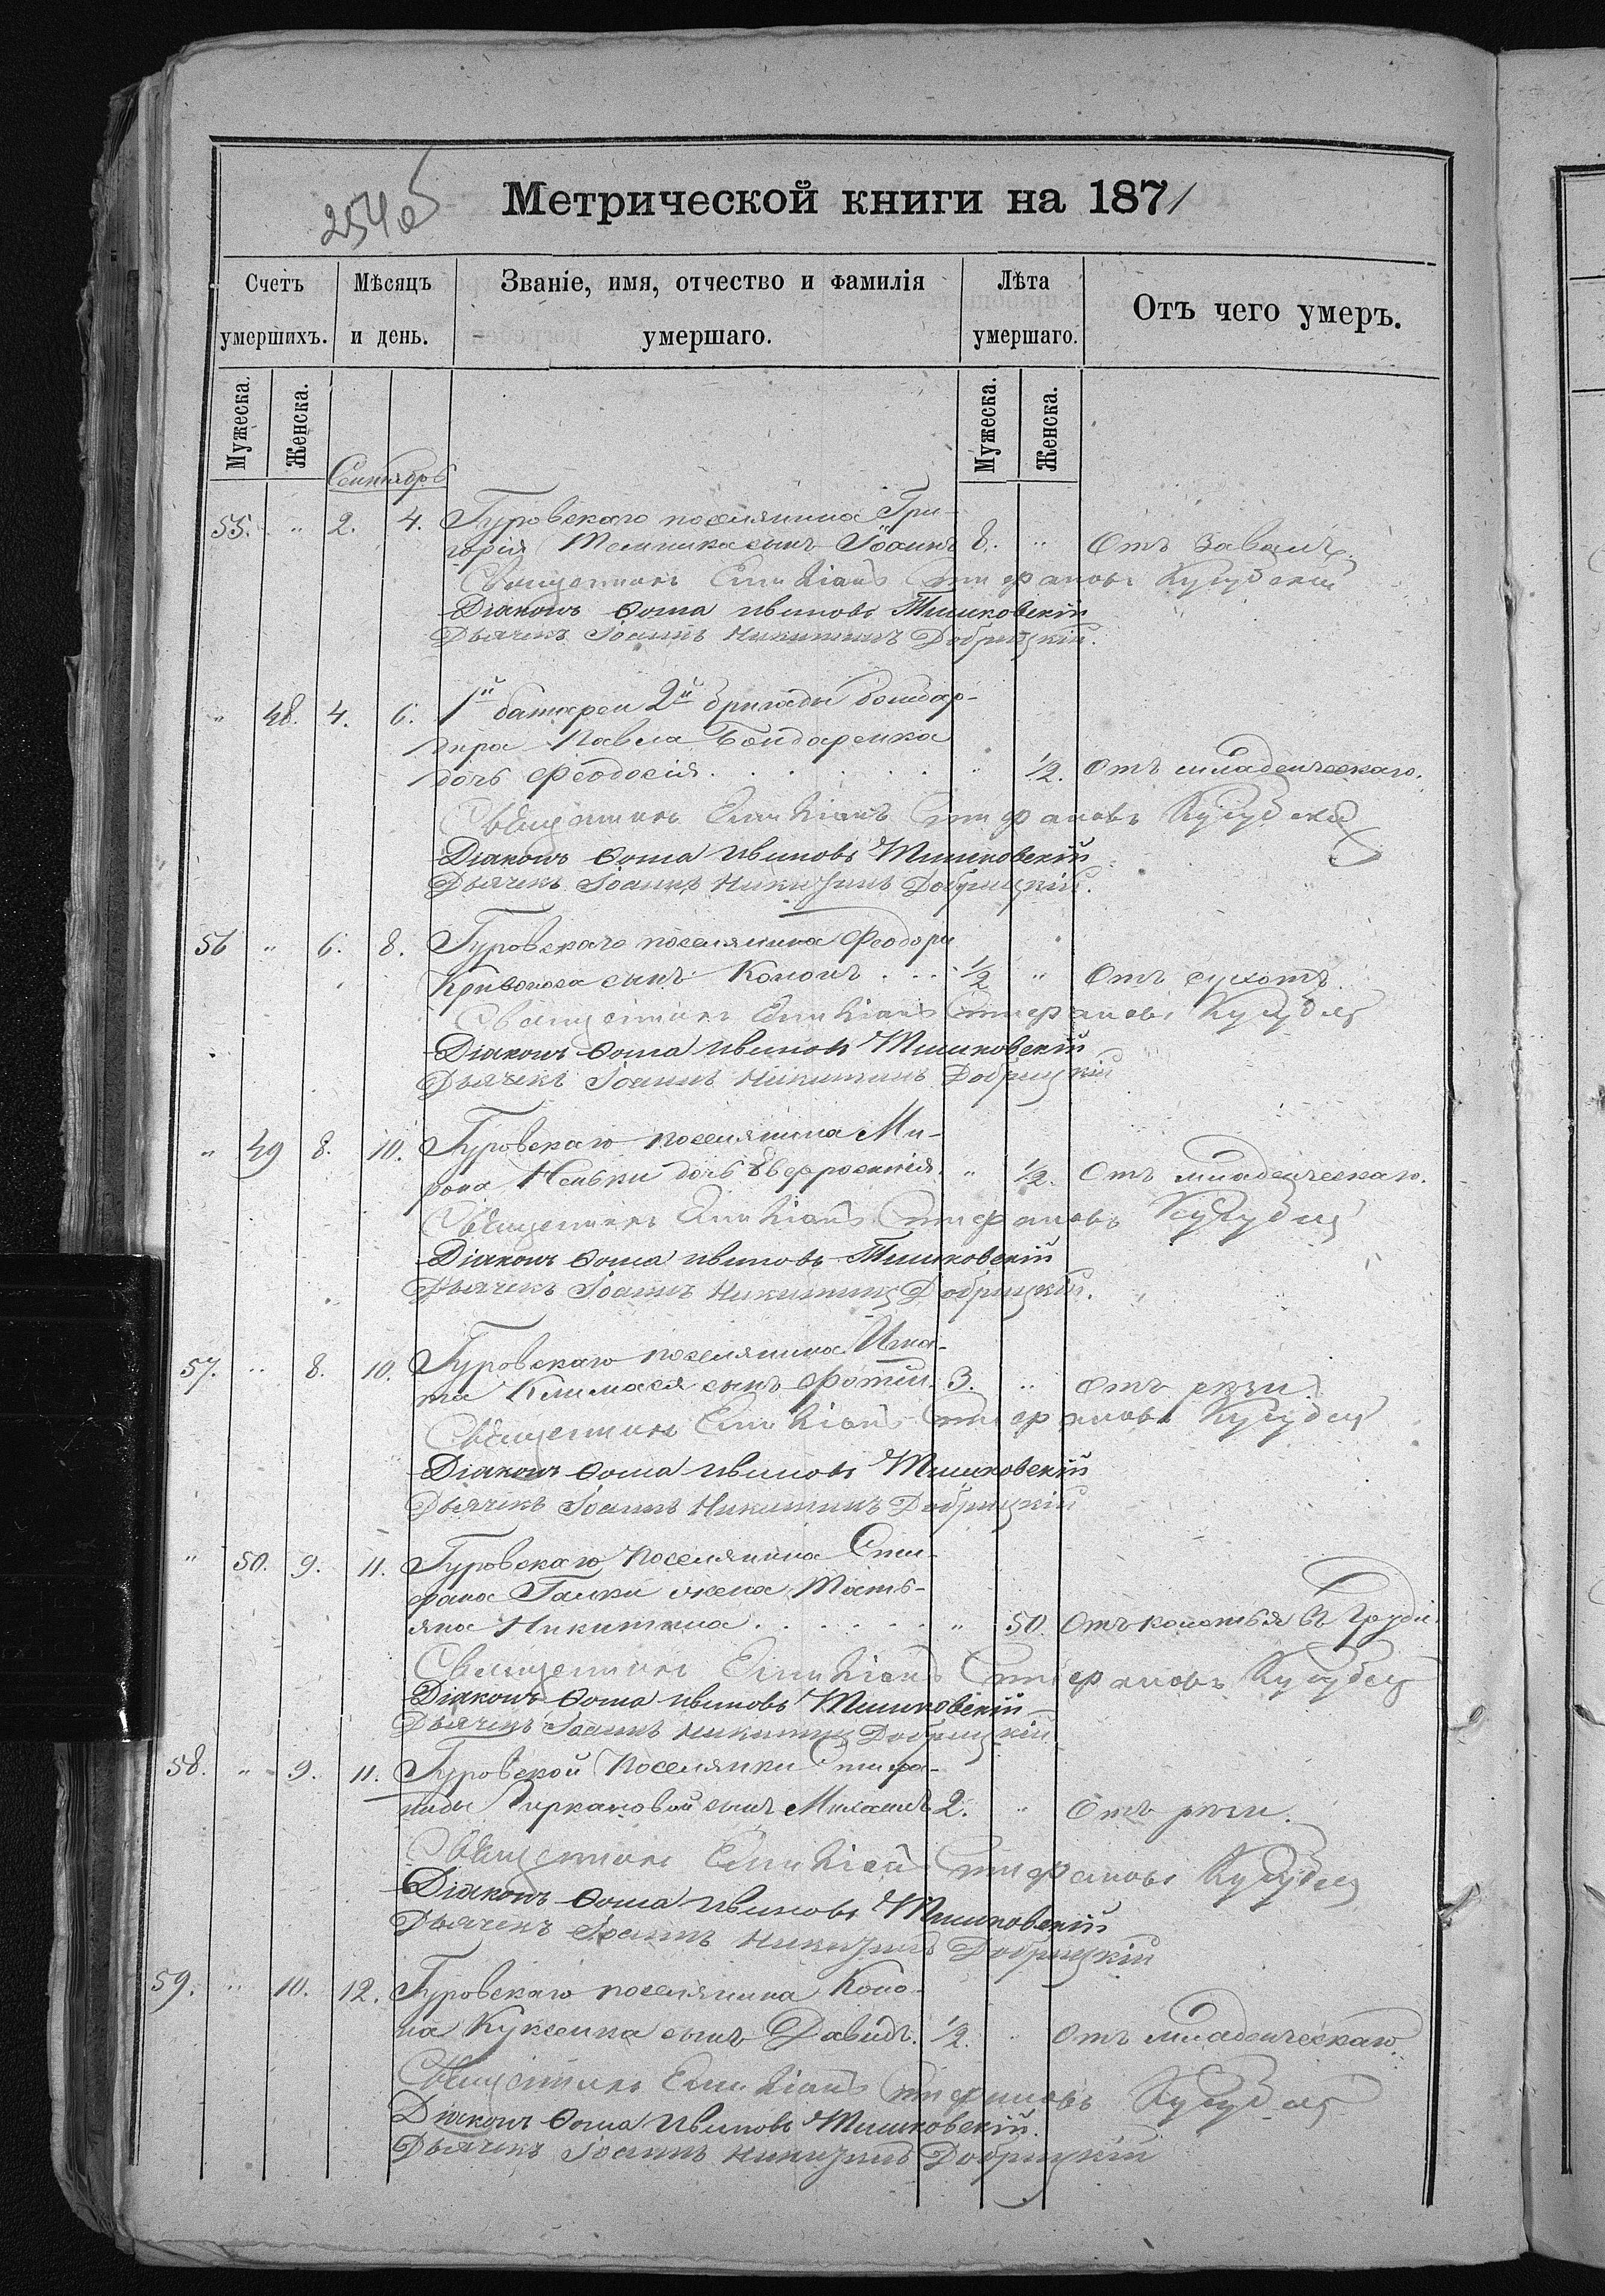 254об
Метрической книги на 1871
Счетъ умершихъ. Мѣсяцъ и день. Званіе, имя, отчество и фамилія умершаго. Лѣта умершаго. Отъ чего умеръ.
Мужеска. Женска. Мужеска. Женска.
Сентябрь
55. " 2. 4. Гуровскаго поселянина Гри-
горія сынъ Іоаннъ 8. " Отъ
Священникъ Емиліанъ Стефановъ
Діаконъ Ѳома Ивановъ Тишковскій
Дьячекъ Іоаннъ Никитинъ Добрицкій.
" 48. 4. 6. 1й батареи 2й бригады бомбар-
дира Павла Бондаренка
дочь Феодосія . . . . . . " 1/2. Отъ младенческаго.
Священникъ Емиліанъ Стефановъ
Діаконъ Ѳома Ивановъ Тишковскій
Дьячекъ Іоаннъ Никитинъ Добрицкій.
56 " 6. 8. Гуровскаго поселянина Феодора
Кривоноса сынъ Кононъ . . . 1/2 " Отъ сухотъ.
Священникъ Емиліанъ Стефановъ
Діаконъ Ѳома Ивановъ Тишковскій
Дьячекъ Іоаннъ Никитинъ Добрицкій
" 49 8. 10. Гуровскаго поселянина Ми-
рона дочь Евфросинія. " 1/2. Отъ младенческаго.
Священникъ Емиліанъ Стефановъ
Діаконъ Ѳома Ивановъ Тишковскій
Дьячекъ Іоаннъ Никитинъ Добрицкій.
57. " 8. 10. Гуровскаго поселянина Игна-
та сынъ Фотій. 3. " Отъ рези.
Священникъ Емиліанъ Стефановъ
Діаконъ Ѳома Ивановъ Тишковскій
Дьячекъ Іоаннъ Никитинъ Добрицкій
" 50. 9. 11. Гуровскаго поселянина Сте-
фана Галки жена Тать-
яна Никитина . . . . . . " 50. Отъ колотья въ груди.
Священникъ Емиліанъ Стефановъ
Діаконъ Ѳома Ивановъ Тишковскій
Дьячекъ Іоаннъ Никитинъ Добрицкій
58. " 9. 11. Гуровской поселянки Стефа-
ниды сынъ 2. " Отъ рези.
Священникъ Емиліанъ Стефановъ
Діаконъ Ѳома Ивановъ Тишковскій
Дьячекъ Іоаннъ Никитинъ Добрицкій
59. " 10. 12. Гуровскаго поселянина Коно-
на Куксенка сынъ Давидъ. 1/2. " Отъ младенческаго.
Священникъ Емиліанъ Стефановъ
Діаконъ Ѳома Ивановъ Тишковскій.
Дьячекъ Іоаннъ Никитинъ Добрицкій